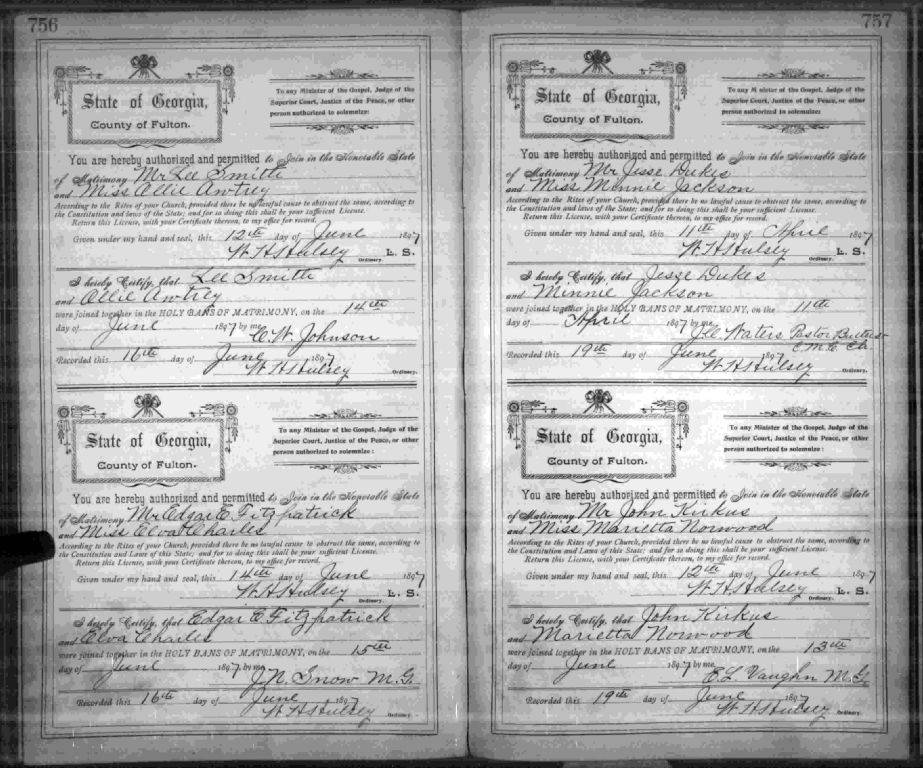 756
State of Georgia,
County of Fulton.
To any Minister of the Gospel, Judge of the
Superior Court, Justice of the Peace, or other
person authorized to solemnize:
You are hereby authorized and permitted to Join in the Honorable State
of Matrimony Mr Lee Smith
and Miss Allie Awtrey
According to the Rites of your Church, provided there be no lawful cause to obstruct the same, according to
the Constitution and laws of the State; and for so doing this shall be your sufficient License.
Return this License, with your Certificate thereon, to my office for record.
Given under my hand and seal, this 12th day of June 1897
W H Hulsey L. S.
Ordinary.
I hereby Certify, that Lee Smith
and Allie Awtrey
were joined together in the HOLY BANS OF MATRIMONY, on the 14th
day of June 1897 by me
C. W. Johnson
Recorded this 16th day of June 1897
W H Hulsey Ordinary.
State of Georgia,
County of Fulton.
To any Minister of the Gospel, Judge of the
Superior Court, Justice of the Peace, or other
person authorized to solemnize:
You are hereby authorized and permitted to Join in the Honorable State
of Matrimony Mr Edgar E. Fitzpatrick
and Miss Elva Charlis
According to the Rites of your Church, provided there be no lawful cause to obstruct the same, according to
the Constitution and Laws of this State; and for so doing this shall be your sufficient License.
Return this License, with your Certificate thereon, to my office for record.
Given under my hand and seal, this 14th day of June 1897
W H Hulsey L. S.
Ordinary.
I hereby Certify, that Edgar E. Fitzpatrick
and Elva Charlis
were joined together in the HOLY BANS OF MATRIMONY, on the 15th
day of June 1897 by me
J. N. Snow M. G.
Recorded this 16th day of June 1897
W H Hulsey Ordinary.
757
State of Georgia,
County of Fulton.
To any Minister of the Gospel, Judge of the
Superior Court, Justice of the Peace, or other
person authorized to solemnize:
You are hereby authorized and permitted to Join in the Honorable State
of Matrimony Mr Jesse Dukes
and Miss Minnie Jackson
According to the Rites of your Church, provided there be no lawful cause to obstruct the same, according to
the Constitution and laws of the State; and for so doing this shall be your sufficient License.
Return this License, with your Certificate thereon, to my office for record.
Given under my hand and seal, this 11th day of April 1897
W H Hulsey L. S.
Ordinary.
I hereby Certify, that Jesse Dukes
and Minnie Jackson
were joined together in the HOLY BANS OF MATRIMONY, on the 11th
day of April 1897 by me
Waters Pastor
Recorded this 19th day of June 1897 C. M. E. Ch
W H Hulsey Ordinary.
State of Georgia,
County of Fulton.
To any Minister of the Gospel, Judge of the
Superior Court, Justice of the Peace, or other
person authorized to solemnize:
You are hereby authorized and permitted to Join in the Honorable State
of Matrimony Mr John Kirkus
and Miss Marietta Norwood
According to the Rites of your Church, provided there be no lawful cause to obstruct the same, according to
the Constitution and Laws of this State; and for so doing this shall be your sufficient License.
Return this License, with your Certificate thereon, to my office for record.
Given under my hand and seal, this 12th day of June 1897
W H Hulsey L. S.
Ordinary.
I hereby Certify, that John Kirkus
and Marietta Norwood
were joined together in the HOLY BANS OF MATRIMONY, on the 13th
day of June 1897 by me
E. L. Vaughn M. G.
Recorded this 19th day of June 1897
W H Hulsey Ordinary.